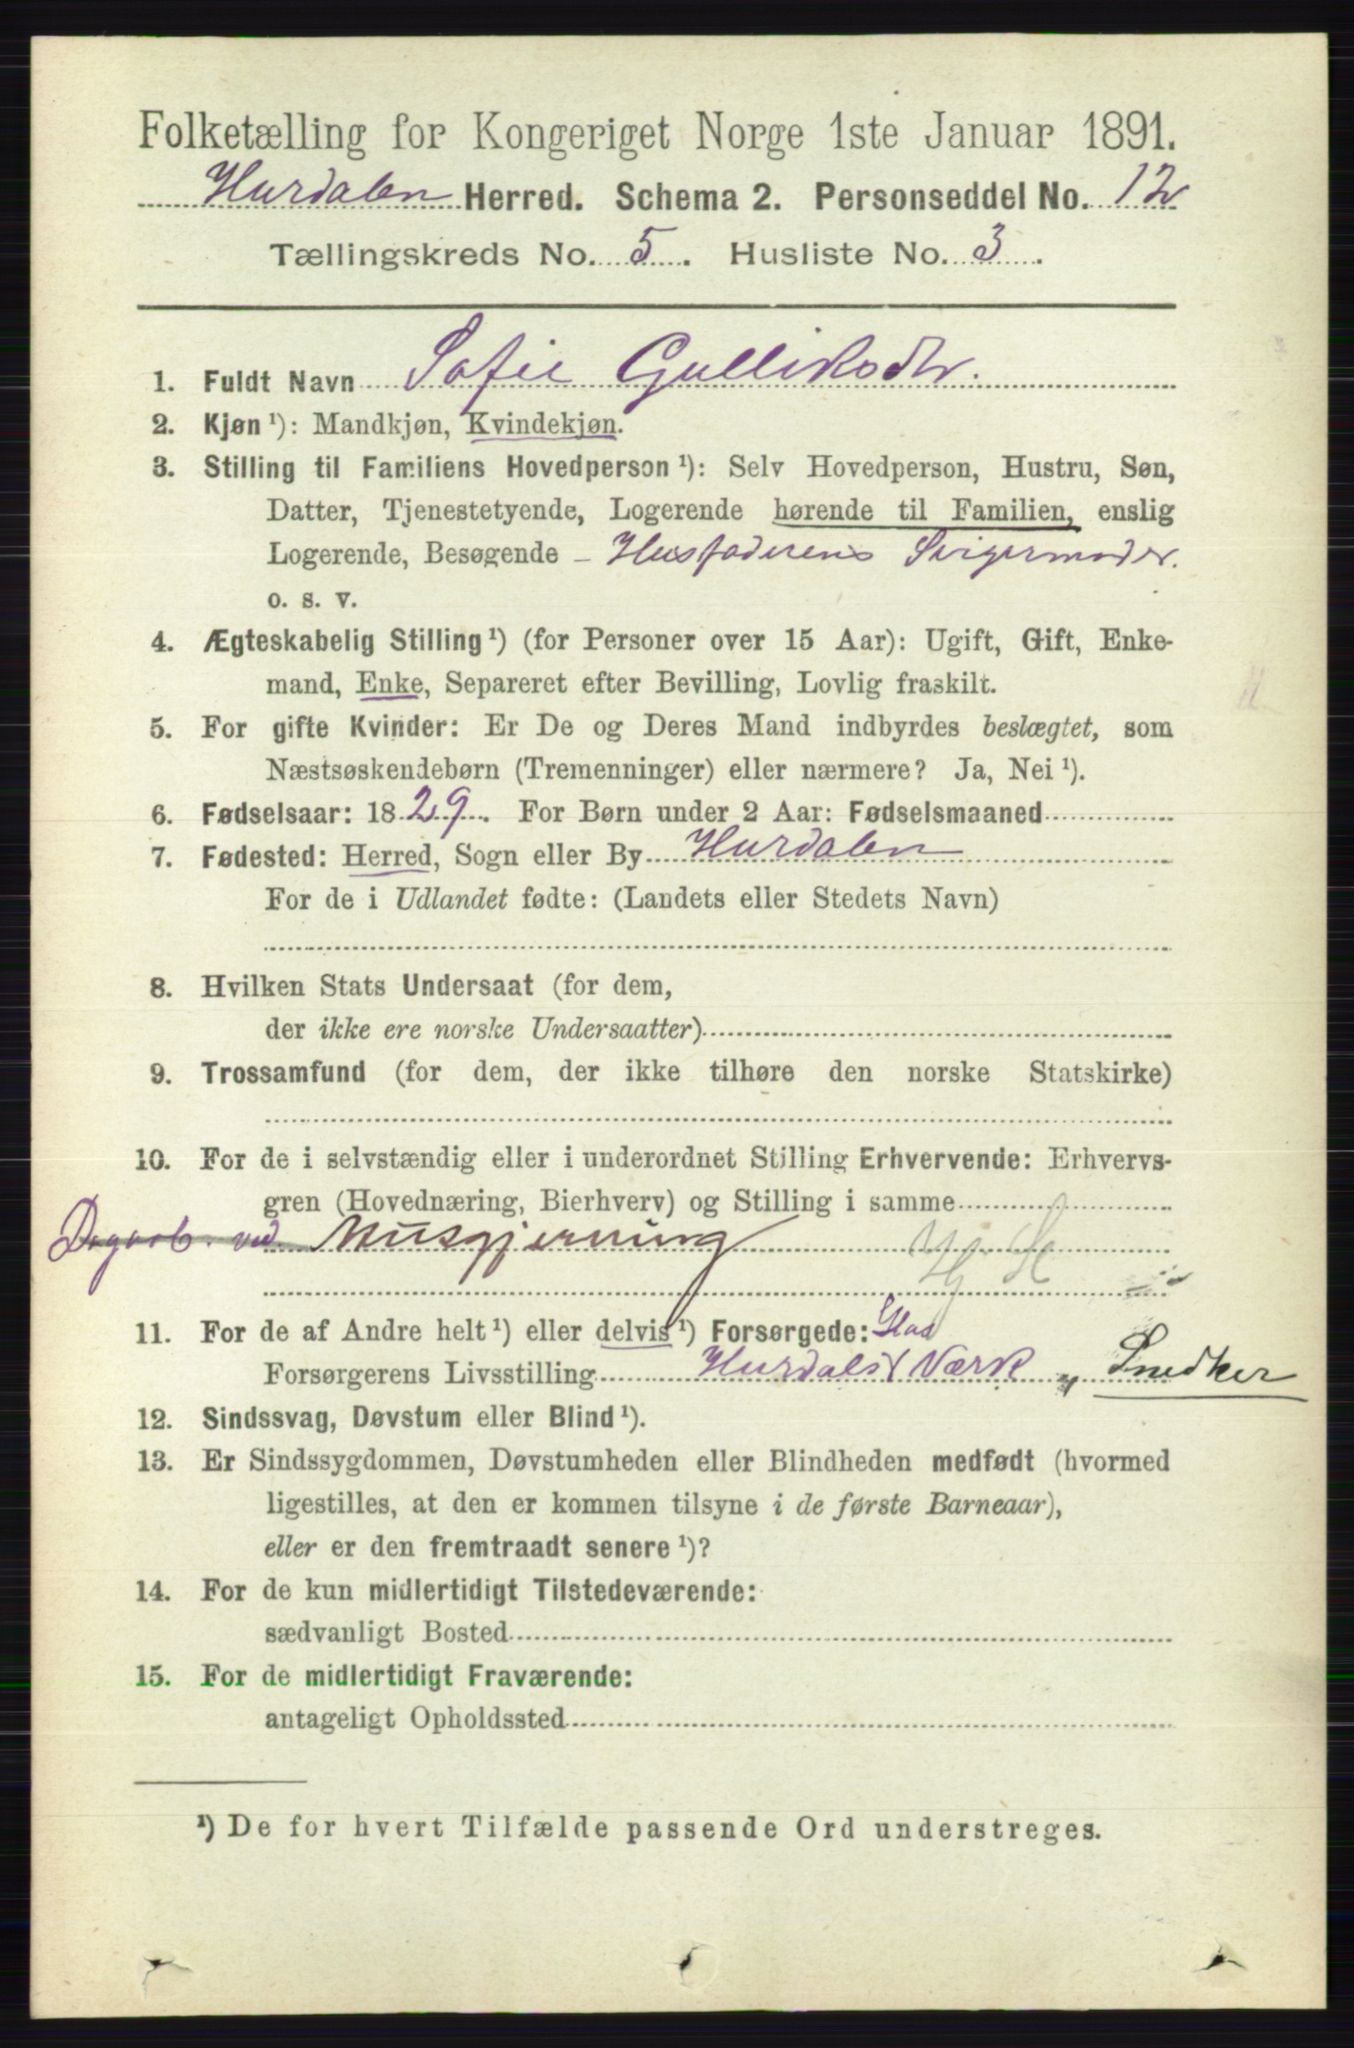 Folketælling for Kongeriget Norge 1ste Januar 1891.
Hurdalen Herred. Schema 2. Personseddel No. 12
Tællingskreds No. 5. Husliste No. 3.
1. Fuldt Navn Sofie Gulliksdtr.
2. Kjøn ¹): Mandkjøn, Kvindekjøn.
3. Stilling til Familiens Hovedperson ¹): Selv Hovedperson, Hustru, Søn,
Datter, Tjenestetyende, Logerende hørende til Familien, enslig
Logerende, Besøgende - Husfaderens Svigermoder.
o. s. v.
4. Ægteskabelig Stilling ¹) (for Personer over 15 Aar): Ugift, Gift, Enke-
mand, Enke, Separeret efter Bevilling, Lovlig fraskilt.
5. For gifte Kvinder: Er De og Deres Mand indbyrdes beslægtet, som
Næstsøskendebørn (Tremenninger) eller nærmere? Ja, Nei ¹).
6. Fødselsaar: 1829. For Børn under 2 Aar: Fødselsmaaned
7. Fødested: Herred, Sogn eller By Hurdalen
For de i Udlandet fødte: (Landets eller Stedets Navn)
8. Hvilken Stats Undersaat (for dem,
der ikke ere norske Undersaatter)
9. Trossamfund (for dem, der ikke tilhøre den norske Statskirke)
10. For de i selvstændig eller i underordnet Stilling Erhvervende: Erhvervs-
gren (Hovednæring, Bierhverv) og Stilling i samme
Dagarb. ved Husgjerning
11. For de af Andre helt ¹) eller delvis ¹) Forsørgede:
Forsørgerens Livsstilling Hurdals Værk Snedker
12. Sindssvag, Døvstum eller Blind ¹).
13. Er Sindssygdommen, Døvstumheden eller Blindheden medfødt (hvormed
ligestilles, at den er kommen tilsyne i de første Barneaar),
eller er den fremtraadt senere ¹)?
14. For de kun midlertidigt Tilstedeværende:
sædvanligt Bosted
15. For de midlertidigt Fraværende:
antageligt Opholdssted
¹) De for hvert Tilfælde passende Ord understreges.